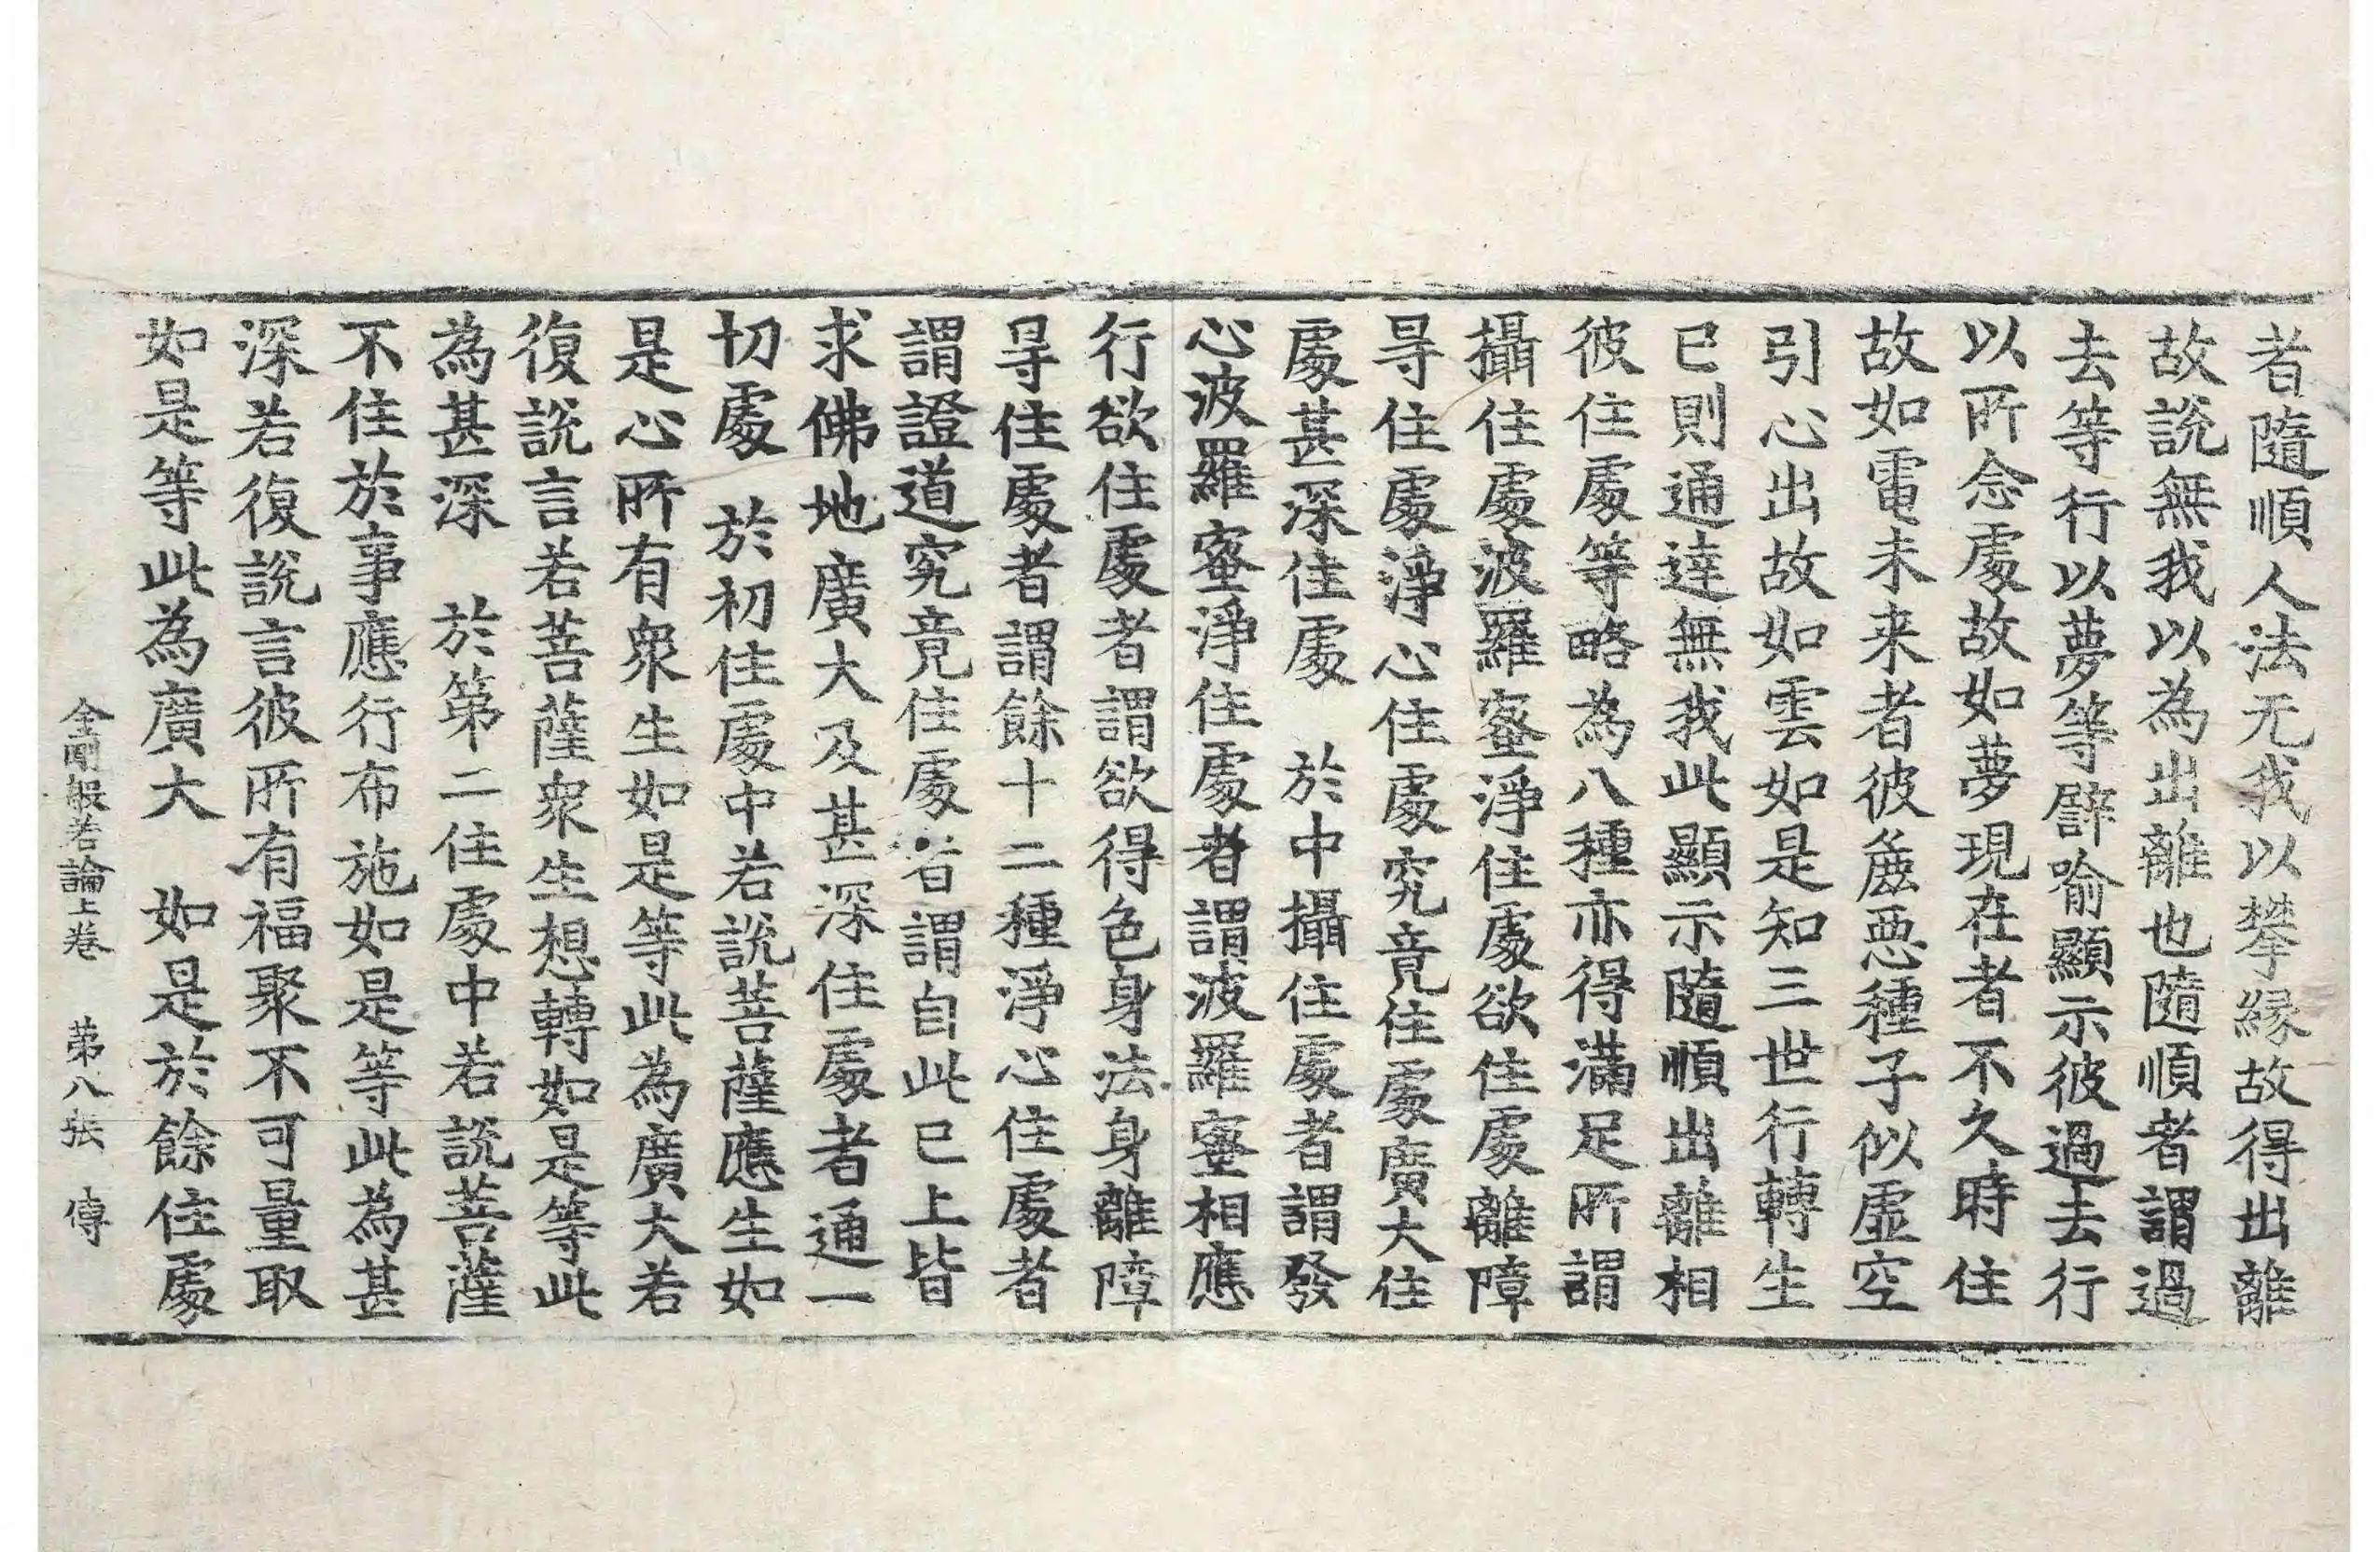 者隨順人法无我以攀縁故得出離
故說無我以為出離也隨順者謂過
去等行以夢等譬喻顯示彼過去行
以所念處故如夢現在者不久時住
故如電未来者彼麁惡種子似虛空
引心出故如雲如是知三世行轉生
已則通達無我此顯示隨順出離相
彼住處等略為八種亦得滿足所謂
攝住處波羅蜜淨住處欲住處離障
㝵住處淨心住處究竟住處廣大住
處甚深住處　於中攝住處者謂發
心波羅蜜淨住處者謂波羅蜜相應
行欲住處者謂欲得色身法身離障
㝵住處者謂餘十二種淨心住處者
謂證道究竟住處者謂自此已上皆
求佛地廣大及甚深住處者通一
切處　於初住處中若說菩薩應生如
是心所有眾生如是等此為廣大若
復說言若菩薩眾生想轉如是等此
為甚深　於第二住處中若說菩薩
不住於事應行布施如是等此為甚
深若復說言彼所有福聚不可量取
如是等此為廣大　如是於餘住處
金剛般若論上卷　第八張　傳